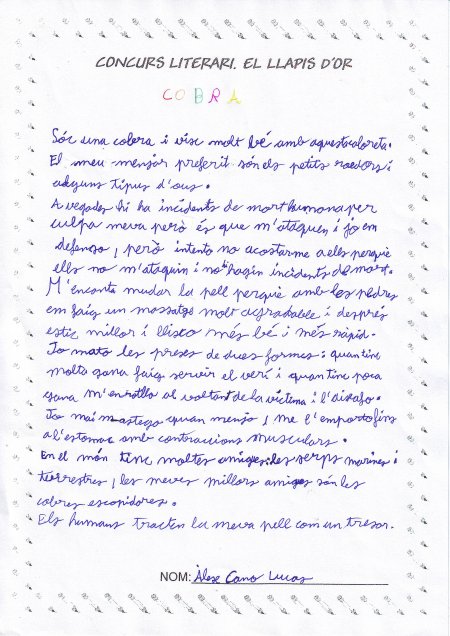 CONCURS LITERARI. EL LLAPIS D'OR
COBRA
Sóc una cobra i visc molt bé amb aquesta caloreta.
El meu menjar preferit són els petits roedors i
alguns tipus d'ous.
A vegades hi ha incidents de mort humana per
culpa meva però és que m'ataquen i jo em
defenso, però intento no acostarme a els perquè
ells no m'ataquin i no hagin incidents de mort.
M'encanta mudar la pell perquè amb les pedres
em faig un massatge molt agradable i després
estic millor i llisco més bé i més ràpid.
Jo mato les preses de dues formes: quan tinc
molta gana faig servir el verí i quan tinc poca
gana m'enrotllo al voltant de la víctima i l'ofego.
Jo mai mastego quan menjo, me l'emporto fins
a l'estomac amb contraccions musculars.
En el món tinc moltes amigues: les serps marines i
terrestres, les meves millors amigues són les
cobres escopidores.
Els humans tracten la meva pell com un tresor.
NOM: Àlex Cano Lucas